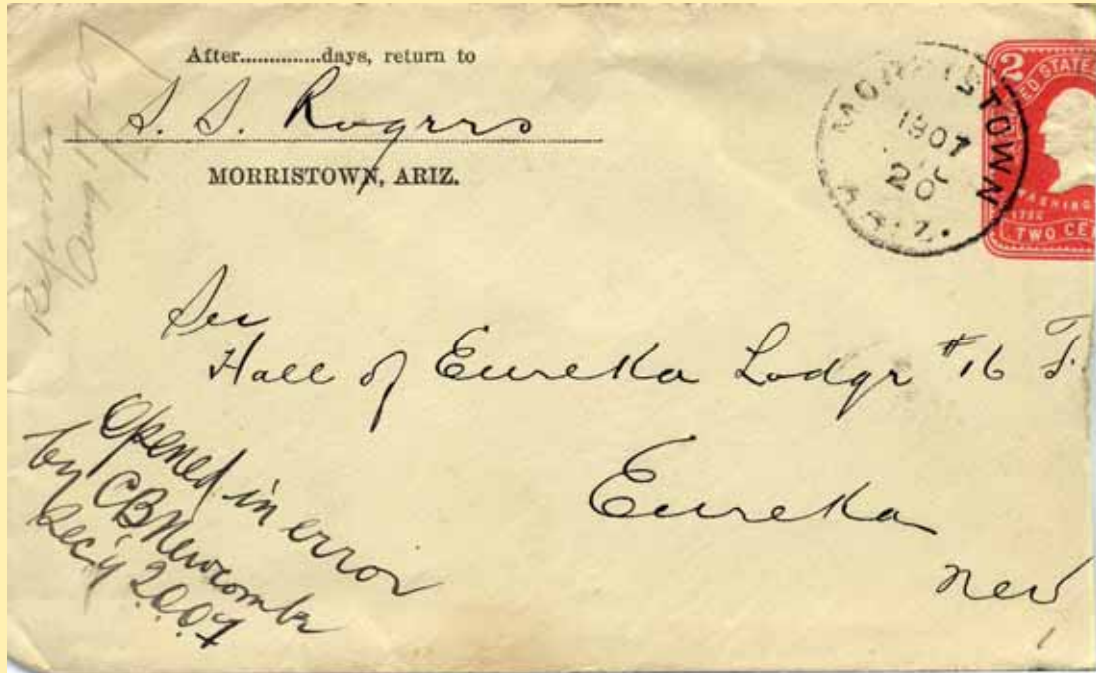 After..............days, return to
S. S. Rogers
MORRISTOWN, ARIZ.
MORRISTOWN
1907
20
ARIZ.
2
UNITED STATES
WASHING
TWO CEN
Sec
Hall of Eureka Lodge #16 F.
Eureka
Nev
Opened in error
by CB Newcomb
Sec'y
Aug 17-07